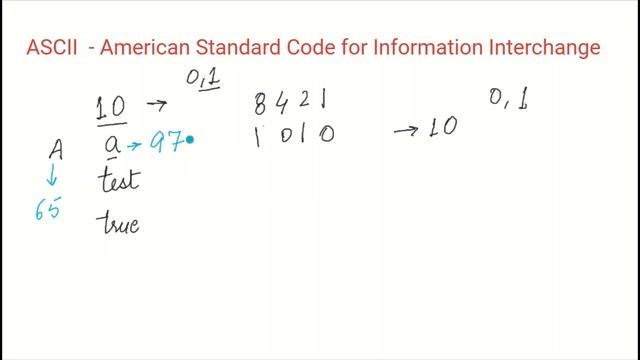 ASCII - American Standard Code for Information Interchange
0,1
10 → 8 4 2 1 0, 1
A a → 97 1 0 1 0 → 10
↓ test
65
true